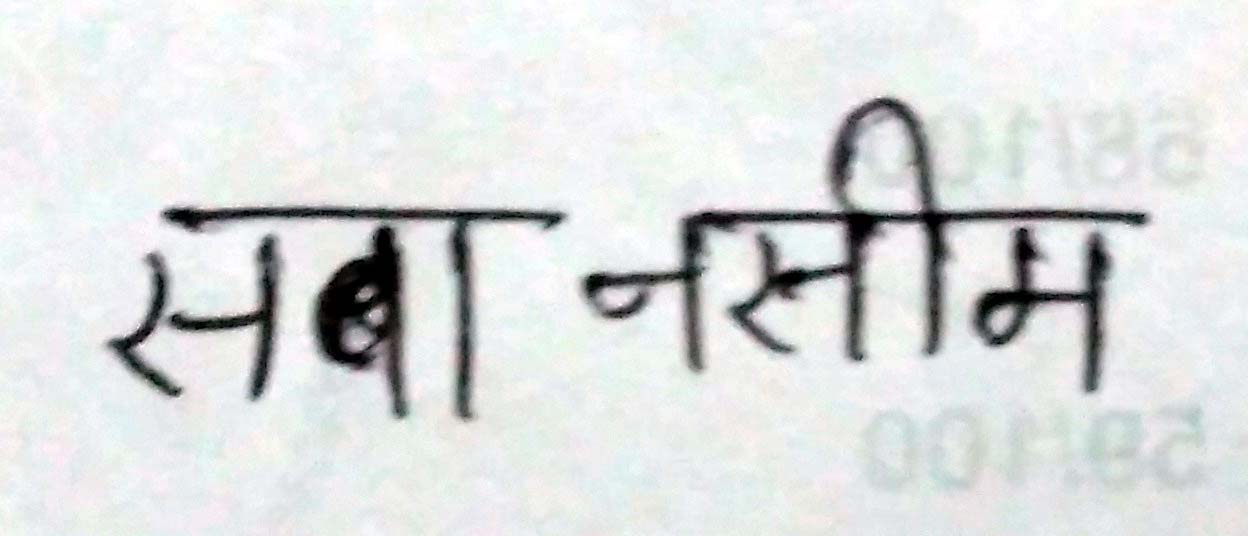 सबा नसीम